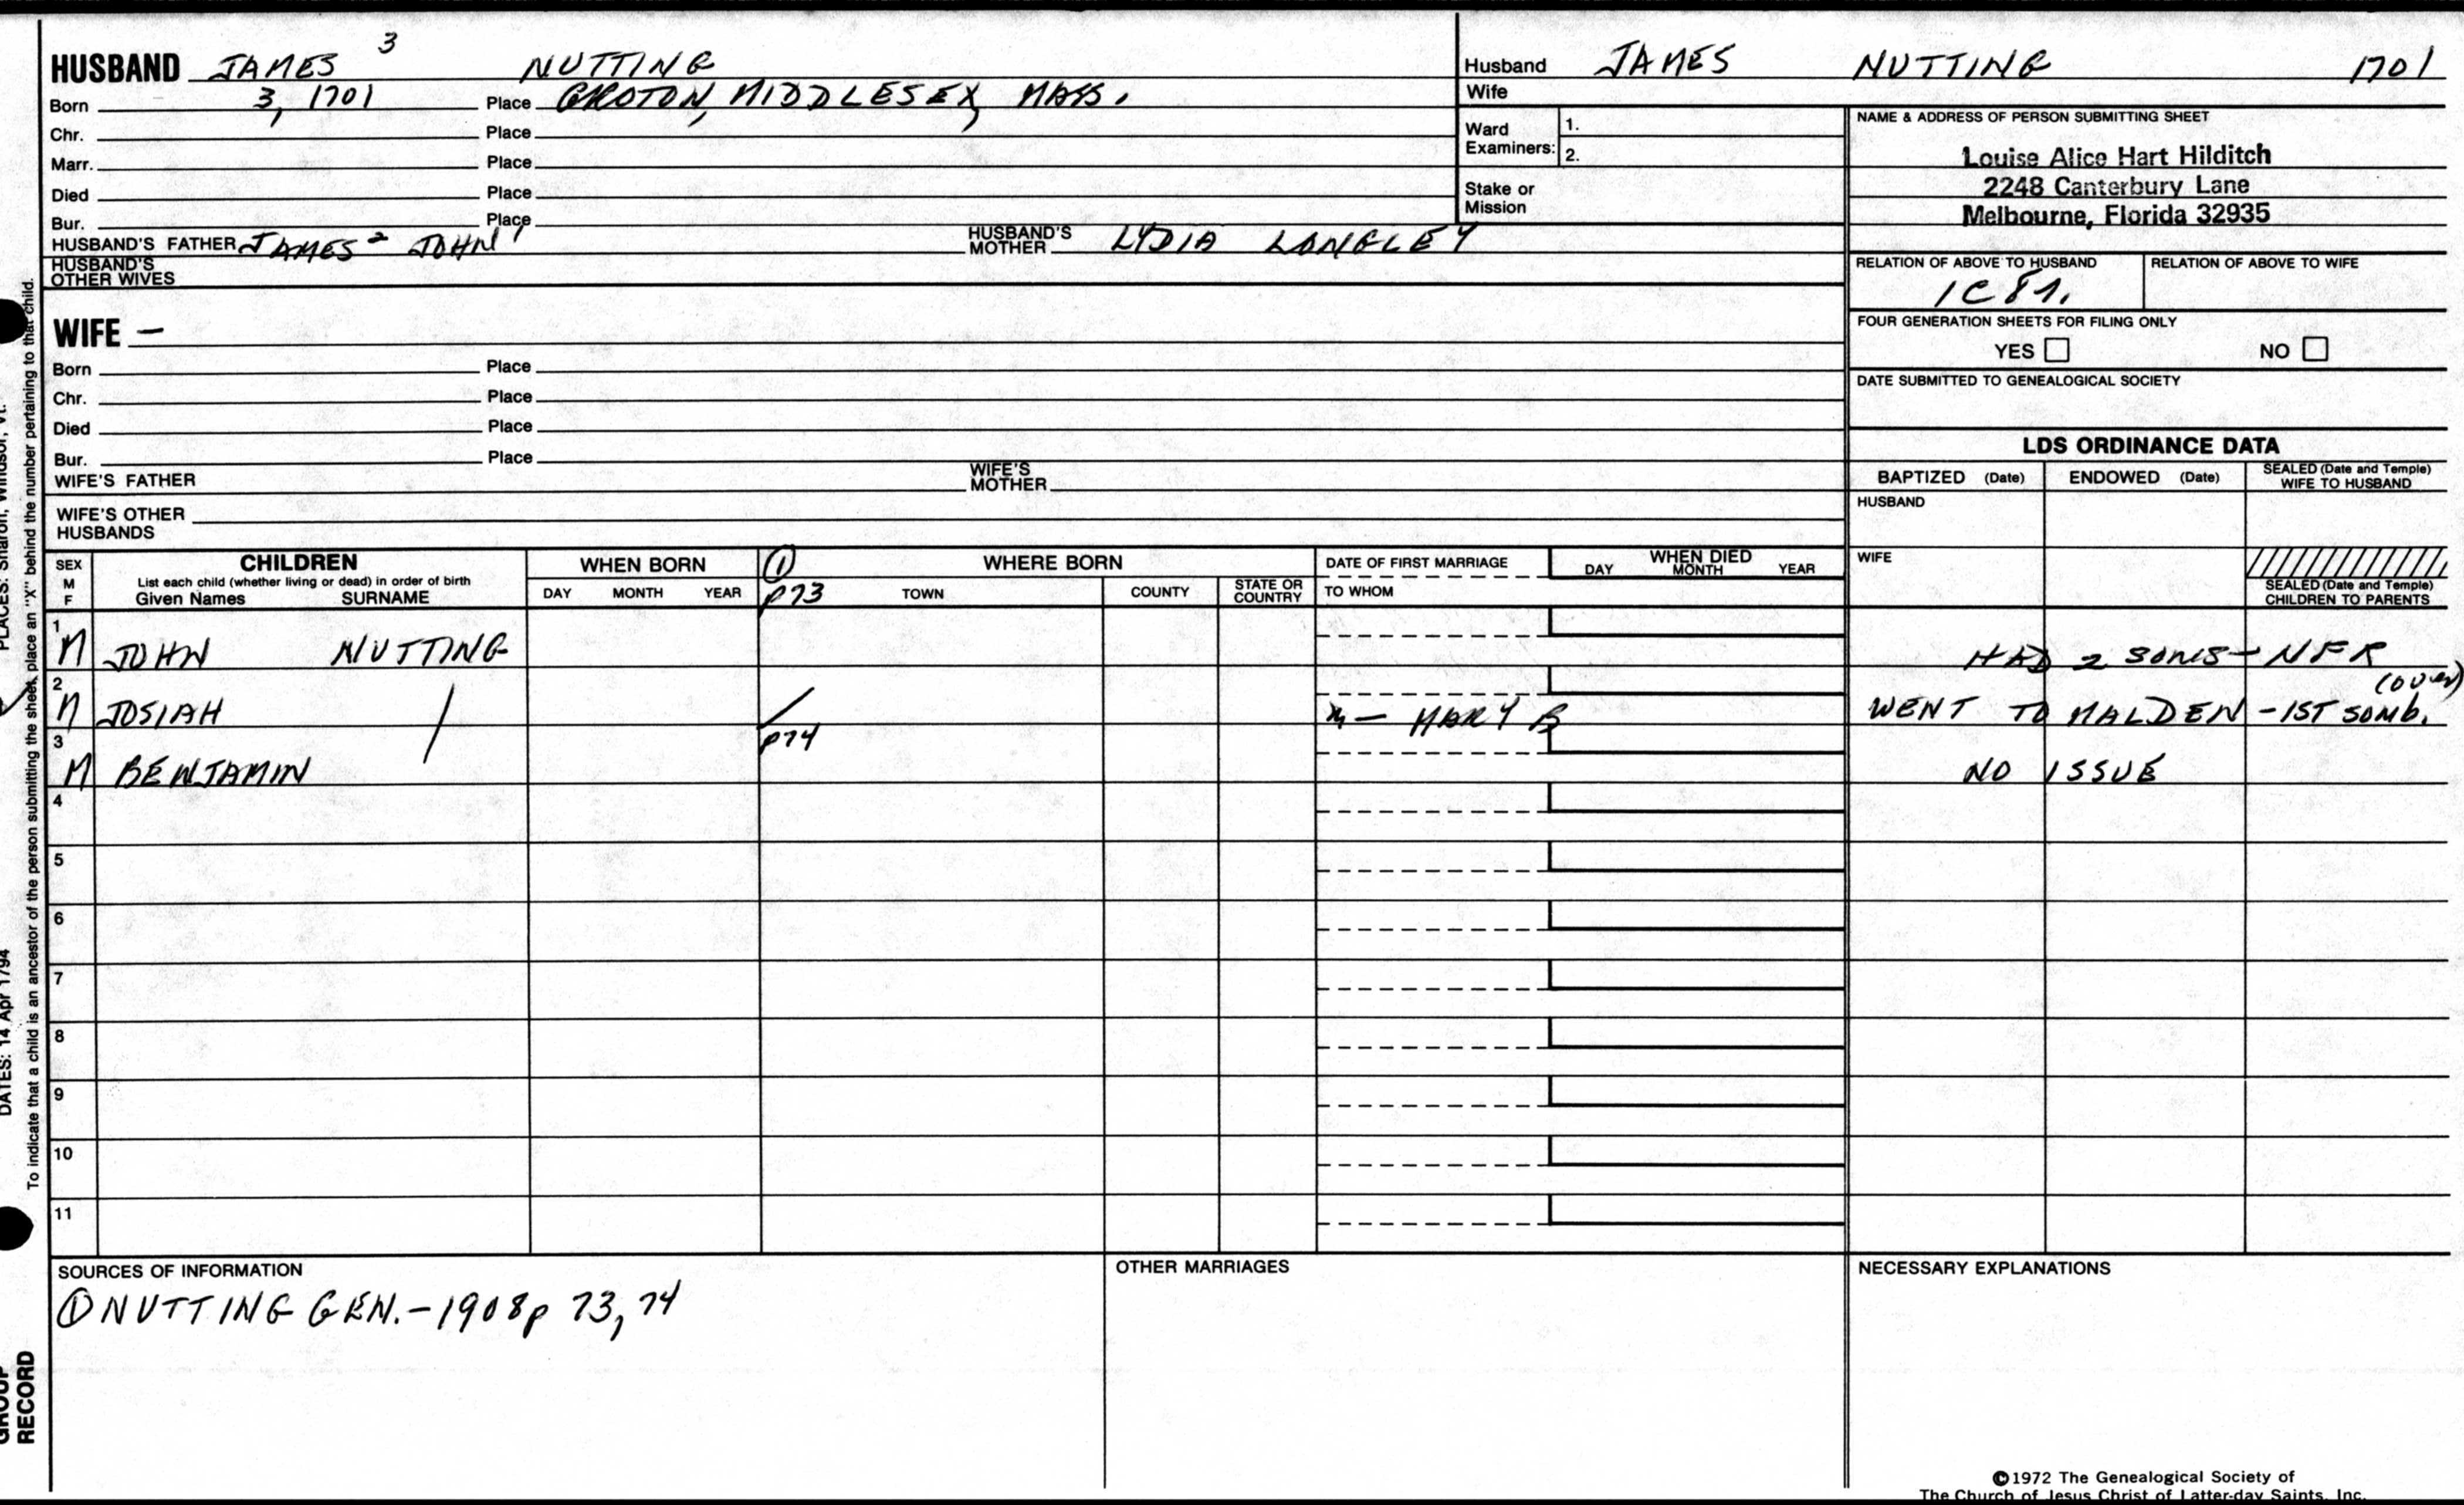 HUSBAND JAMES 3 NUTTING
Born 3, 1701 Place GROTON, MIDDLESEX, MASS.
Chr. Place
Marr. Place
Died Place
Bur. Place
HUSBAND'S FATHER JAMES 2 JOHN 1 HUSBAND'S MOTHER LYDIA LONGLEY
HUSBAND'S OTHER WIVES
Husband JAMES NUTTING 1701
Wife
Ward Examiners: 1.
2.
Stake or Mission
NAME & ADDRESS OF PERSON SUBMITTING SHEET
Louise Alice Hart Hilditch
2248 Canterbury Lane
Melbourne, Florida 32935
RELATION OF ABOVE TO HUSBAND RELATION OF ABOVE TO WIFE
FOUR GENERATION SHEETS FOR FILING ONLY
YES NO
DATE SUBMITTED TO GENEALOGICAL SOCIETY
WIFE —
Born Place
Chr. Place
Died Place
Bur. Place
WIFE'S FATHER WIFE'S MOTHER
WIFE'S OTHER HUSBANDS
LDS ORDINANCE DATA
BAPTIZED (Date) ENDOWED (Date) SEALED (Date and Temple) WIFE TO HUSBAND
HUSBAND
WIFE
SEALED (Date and Temple) CHILDREN TO PARENTS
SEX M F
CHILDREN
List each child (whether living or dead) in order of birth
Given Names SURNAME
WHEN BORN
DAY MONTH YEAR
① p73
WHERE BORN
TOWN COUNTY STATE OR COUNTRY
DATE OF FIRST MARRIAGE
TO WHOM
WHEN DIED
DAY MONTH YEAR
1 M JOHN NUTTING HAD 2 SONS - NFR
(over)
2 M JOSIAH / / m — MARY B WENT TO MALDEN - 1ST SON b.
3 M BENJAMIN p74 NO ISSUE
4
5
6
7
8
9
10
11
SOURCES OF INFORMATION
① NUTTING GEN. - 1908 p 73, 74
OTHER MARRIAGES
NECESSARY EXPLANATIONS
©1972 The Genealogical Society of
The Church of Jesus Christ of Latter-day Saints, Inc.
PLACES: Sharon, Windsor, Vt.
To indicate that a child is an ancestor of the person submitting the sheet, place an "X" behind the number pertaining to that child.
DATES: 14 Apr 1794
GROUP
RECORD